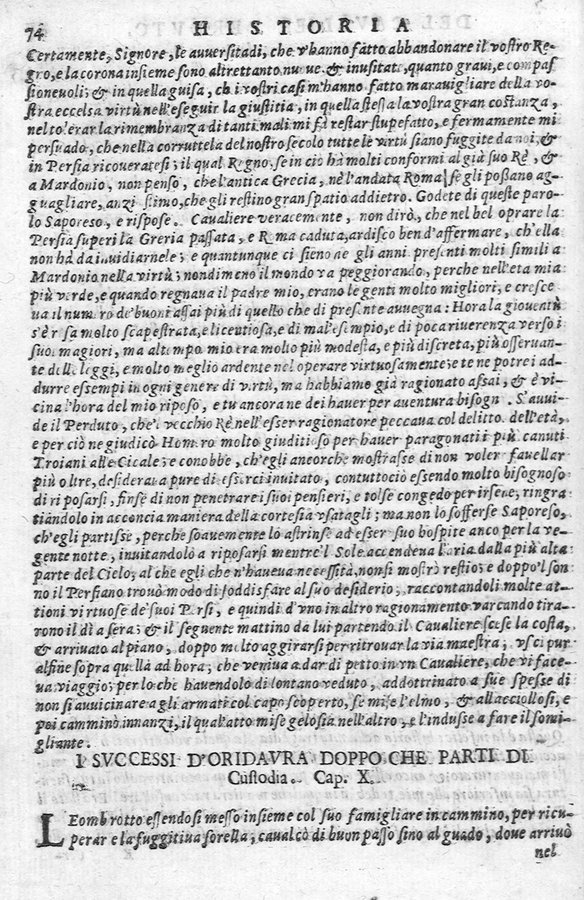 74 HISTORIA
Certamente, Signore, le auuersitadi, che v'hanno fatto abbandonare il vostro Re-
gno, e la corona insieme sono altrettanto nuoue & inusitate, quanto graui, e compas
sioneuoli; & in quella guisa, ch'i vostri casi m'hanno fatto marauigliare della vo-
stra eccelsa virtù nell'eseguir la giustitia, in quella stessa la vostra gran costanza,
nel tolerar la rimembranza di tanti mali mi fà restar stupefatto, e fermamente mi
persuado, che nella corruttela del nostro secolo tutte le virtù siano fuggite da noi, &
in Persia ricoueratesi; il qual Regno, se in ciò hà molti conformi al già suo Rè, &
a Mardonio, non penso, che l'antica Grecia, nè l'andata Roma se gli possano ag-
guagliare, anzi stimo, che gli restino gran spatio addietro. Godete di queste paro-
lo Saporeso, e rispose. Caualiere veracemente, non dirò, che nel bel oprare la
Persia superi la Greria passata, e Roma caduta, ardisco ben d'affermare, ch'ella
non hà da inuidiarnele; e quantunque ci sieno ne gli anni presenti molti simili a
Mardonio nella virtù; nondimeno il mondo va peggiorando, perche nell'età mia
più verde, e quando regnaua il padre mio, erano le genti molto migliori, e cresce
ua il numero de' buoni assai più di quello che di presente auuegna: Hora la giouentù
s'è resa molto scapestrata, e licentiosa, e di mal'esempio, e di poca riuerenza verso i
suoi magiori, ma al tempo mio era molto più modesta, e più discreta, più osseruan-
te delle leggi, e molto meglio ardente nel operare virtuosamente; e te ne potrei ad-
durre essempi in ogni genere di virtù, ma habbiamo già ragionato assai, & è vi-
cina l'hora del mio riposo, e tu ancora ne dei hauer per auentura bisogno. S'auui-
de il Perduto, che'l vecchio Rè nell'esser ragionatore peccaua col delitto dell'età,
e perciò ne giudicò Homero molto giuditioso per hauer paragonati i più canuti
Troiani alle Cicale; e conobbe, ch'egli ancorche mostrasse di non voler fauellar
più oltre, desideraua pure di esserci inuitato, contuttociò essendo molto bisognoso
di riposarsi, finse di non penetrare i suoi pensieri, e tolse congedo per irsene, ringra
tiandolo in acconcia maniera della cortesia vsatagli; ma non lo sofferse Saporeso,
ch'egli partisse, perche soauemente lo astrinse ad esser suo hospite anco per la ve-
gente notte, inuitandolo a riposarsi mentre'l Sole accendeua l'aria dalla più alta
parte del Cielo; al che egli che n'haueua necessità, non si mostrò restio; e doppo'l son-
no il Persiano trouò modo di soddisfare al suo desiderio, raccontandoli molte at-
tioni virtuose de' suoi Persi, e quindi d'vno in altro ragionamento varcando tira-
rono il dì a sera; & il seguente mattino da lui partendo il Caualiere scese la costa,
& arriuato al piano, doppo molto aggirarsi per ritrouar la via maestra, vscì pur
alfine sopra quella ad hora, che veniua a dar di petto in vn Caualiere, che vi face-
ua viaggio; per lo che hauendolo di lontano veduto, addottrinato a sue spese di
non si auuicinare a gli armati col capo scoperto, se mise l'elmo, & allacciollosi, e
poi camminò innanzi, il qual'atto mise gelosia nell'altro, e l'indusse a fare il somi-
gliante.
I SVCCESSI D'ORIDAVRA DOPPO CHE PARTI DI
Custodia. Cap. X.
LEombrotto essendosi messo insieme col suo famigliare in cammino, per ricu-
perar e la fuggitiua sorella; caualcò di buon passo sino al guado, doue arriuò
nel